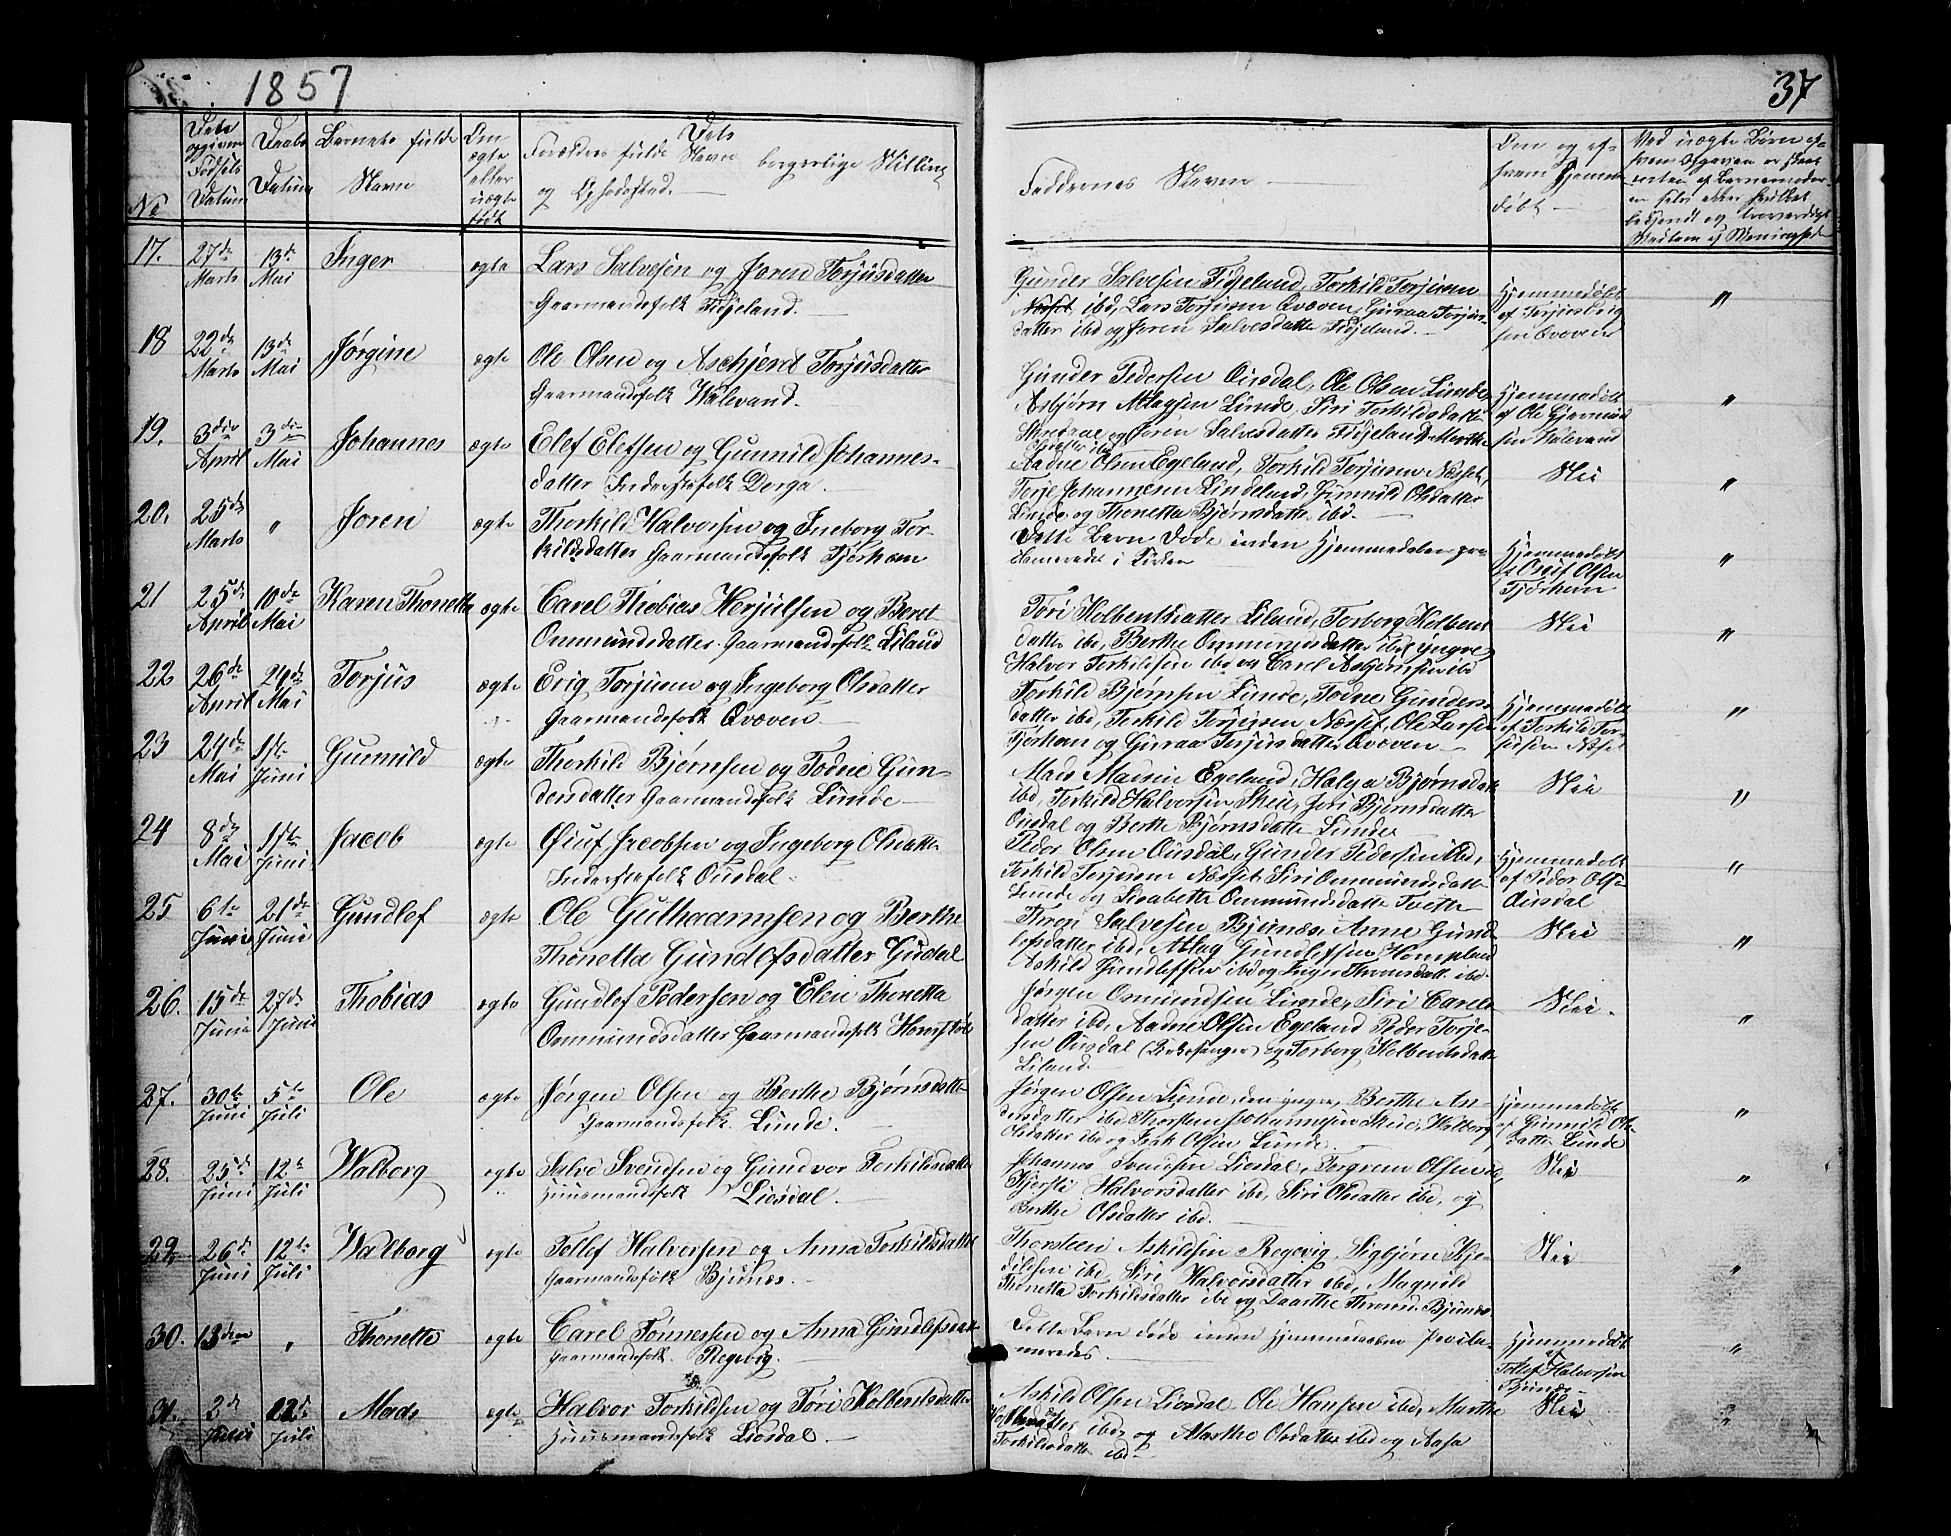 1857
37
No
Dets opgivne Fødsels Datum
Daabs Datum
Barnets fulde Navn
Om ægte eller uægte født
Forældres fulde Navn borgerlige Stilling
og Opholdssted.
Faddernes Navne
Om og af hvem hjemmedøbt
17. 27de Marts 13de Mai Inger ægte
Lars Salvesen og Joren Torjusdatter
Gaarmandsfolk Fidjeland.
Gunder Salvesen Fidjeland, Torkild Torjusen
ibd, Lars Torjusen Qvæven, Guraa Torjus-
datter ibd og Joren Salvesdatter Fidjeland.
Hjemmedøbt
af Torjus
sen Qvæven
"
18 22de Marts 13de Mai Jørgine ægte
Ole Olsen og Aschjerd Torjusdatter
Gaarmandsfolk Walevand.
Gunder Pedersen Ousdal, Ole Olsen Lunde,
Asbjørn Atlagsen Lunde, Siri Torkildsdatter
og Joren Salvesdatter Fidjeland
Hjemmedøbt
af Ole Gjermund
sen Walevand
"
19. 3die April 3die Mai Johannes ægte
Elef Elefsen og Gunnild Johannes-
datter Inderstfolk Dorga.
Aadne Olsen Egeland, Torkild Torjusen Næset,
Torje Johannesen Lindeland, Gunnild Olsdatter
Lunde og Thonetta Bjørnsdatter ibd.
Nei
"
20. 25de Marts " Joren ægte
Thorkild Halvorsen og Ingeborg Tor-
kildsdatter Gaarmandsfolk Tjørhom
Dette Barn døde inden Hjemmedaaben pro-
clameredes i Kirken
Hjemmedøbt
af Osuf Olsen
Tjørhom
"
21 25de April 10de Mai Karen Thonetta ægte
Carel Thobias Herjulfsen og Beret
Ommundsdatter Gaarmandsfolk Liland
Tøri Kolbentsdatter Liland, Torborg Kolbents
datter ibd, Berthe Ommundsdatter ibd yngre,
Halvor Torkildsen ibd og Carel Asbjørnsen ibd
Nei
"
22 26de April 24de Mai Torjus ægte
Erig Torjusen og Ingeborg Olsdatter
Gaarmandsfolk Qvæven
Torkild Bjørnsen Lunde, Todne Gunders-
datter ibd, Torkild Torjusen Næsset, Ole Larsen
Tjørhom og Guraa Torjusdatter Qvæven
Hjemmedøbt
af Torkild Tor-
jusen Næset
"
23 24de Mai 1ste Juni Gunnild ægte
Thorkild Bjørnsen og Todne Gun-
dersdatter Gaarmandsfolk Lunde
Mads Madsen Egeland, Helga Bjørnsdatt
ibd, Torkild Halvorsen Skeie, Jori Bjørnsdatter
Ousdal og Berthe Bjørnsdatter Lunde
Nei
"
24 8de Mai 1ste Juni Jacob ægte
Osuf Jacobsen og Ingeborg Olsdatter
Inderstfolk Ousdal.
Peder Olsen Ousdal, Gunder Pedersen ibd,
Torkild Torjusen Næsset, Siri Ommundsdatter
Lunde og Lisabette Ommundsdatter Tveten
Hjemmedøbt
af Peder Olsen
Ousdal
"
25 6te Juni 21de Juni Gundlef ægte
Ole Gulthaarmsen og Berthe
Thonetta Gundlefsdatter Gudal
Thore Salvesen Bjunæs, Anne Gund-
lefsdatter ibd, Atlag Gundlefsen Hompland
Askild Gundlefsen ibd og Inger Thoresdatt. ibd.
Nei
"
26. 15de Junii 27de Juni Thobias ægte
Gundlef Pedersen og Elen Thonetta
Ommundsdatter Gaarmandsfolk Homstøl
Jørgen Osmundsen Lunde, Siri Carels-
datter ibd, Aadne Olsen Egeland Peder Torje-
sen Ousdal (Kirkesanger) og Torborg Kolbentsdatter
Liland.
Nei.
"
27. 30te Juni 5te Juli Ole ægte
Jørgen Olsen og Berthe Bjørnsdatter
Gaarmandsfolk Lunde.
Jørgen Olsen Lunde, den yngre, Berthe An-
dersdatter ibd Thorsten Johannesen Skeie, Walborg
Olsdatter ibd og Isak Olsen Lunde.
Hjemmedøbt
af Gunnild Ols-
datter Lunde
"
28. 25de Juni 12te Juli Walborg ægte
Salve Svendsen og Gundvor Torkildsdatter
Huusmandsfolk Liosdal.
Johannes Svendsen Liosdal, Torgrem Olsen ibd,
Kjersti Halvorsdatter ibd, Siri Olsdatter ibd, og
Berthe Olsdatter ibd.
Nei
"
29. 26de Juni 12te Juli Walborg ægte
Tollef Halvorsen og Anna Torkildsdatter
Gaarmandsfolk Bjunæs.
Thorsteen Askildsen Regevig, Sigbjørn Kje-
dilsen ibd, Siri Halvorsdatter ibd, Magnild
Thonetta Torkildsdatter ibd og Daarthe Thoresd. Bjunæs
Nei
"
30. 13den " Thonette ægte
Carel Tønnessen og Anna Gundlefsdatt
Gaarmandsfolk. Regevig.
Dette Barn døde inden Hjemmedaaben procla-
meredes.
Hjemmedøbt
af
Tollef Halvorsen
Bjunæs
"
31. 2de Julii 12te Juli Mads ægte
Halvor Torkildsen og Tøri Kolbentsdatter
Huusmandsfolk Liosdal.
Askild Olsen Liosdal, Ole Hansen ibd, Marthe
ibd, og Marthe Olsdatter ibd og Aasa
Torkildsdatter ibd
Nei
"